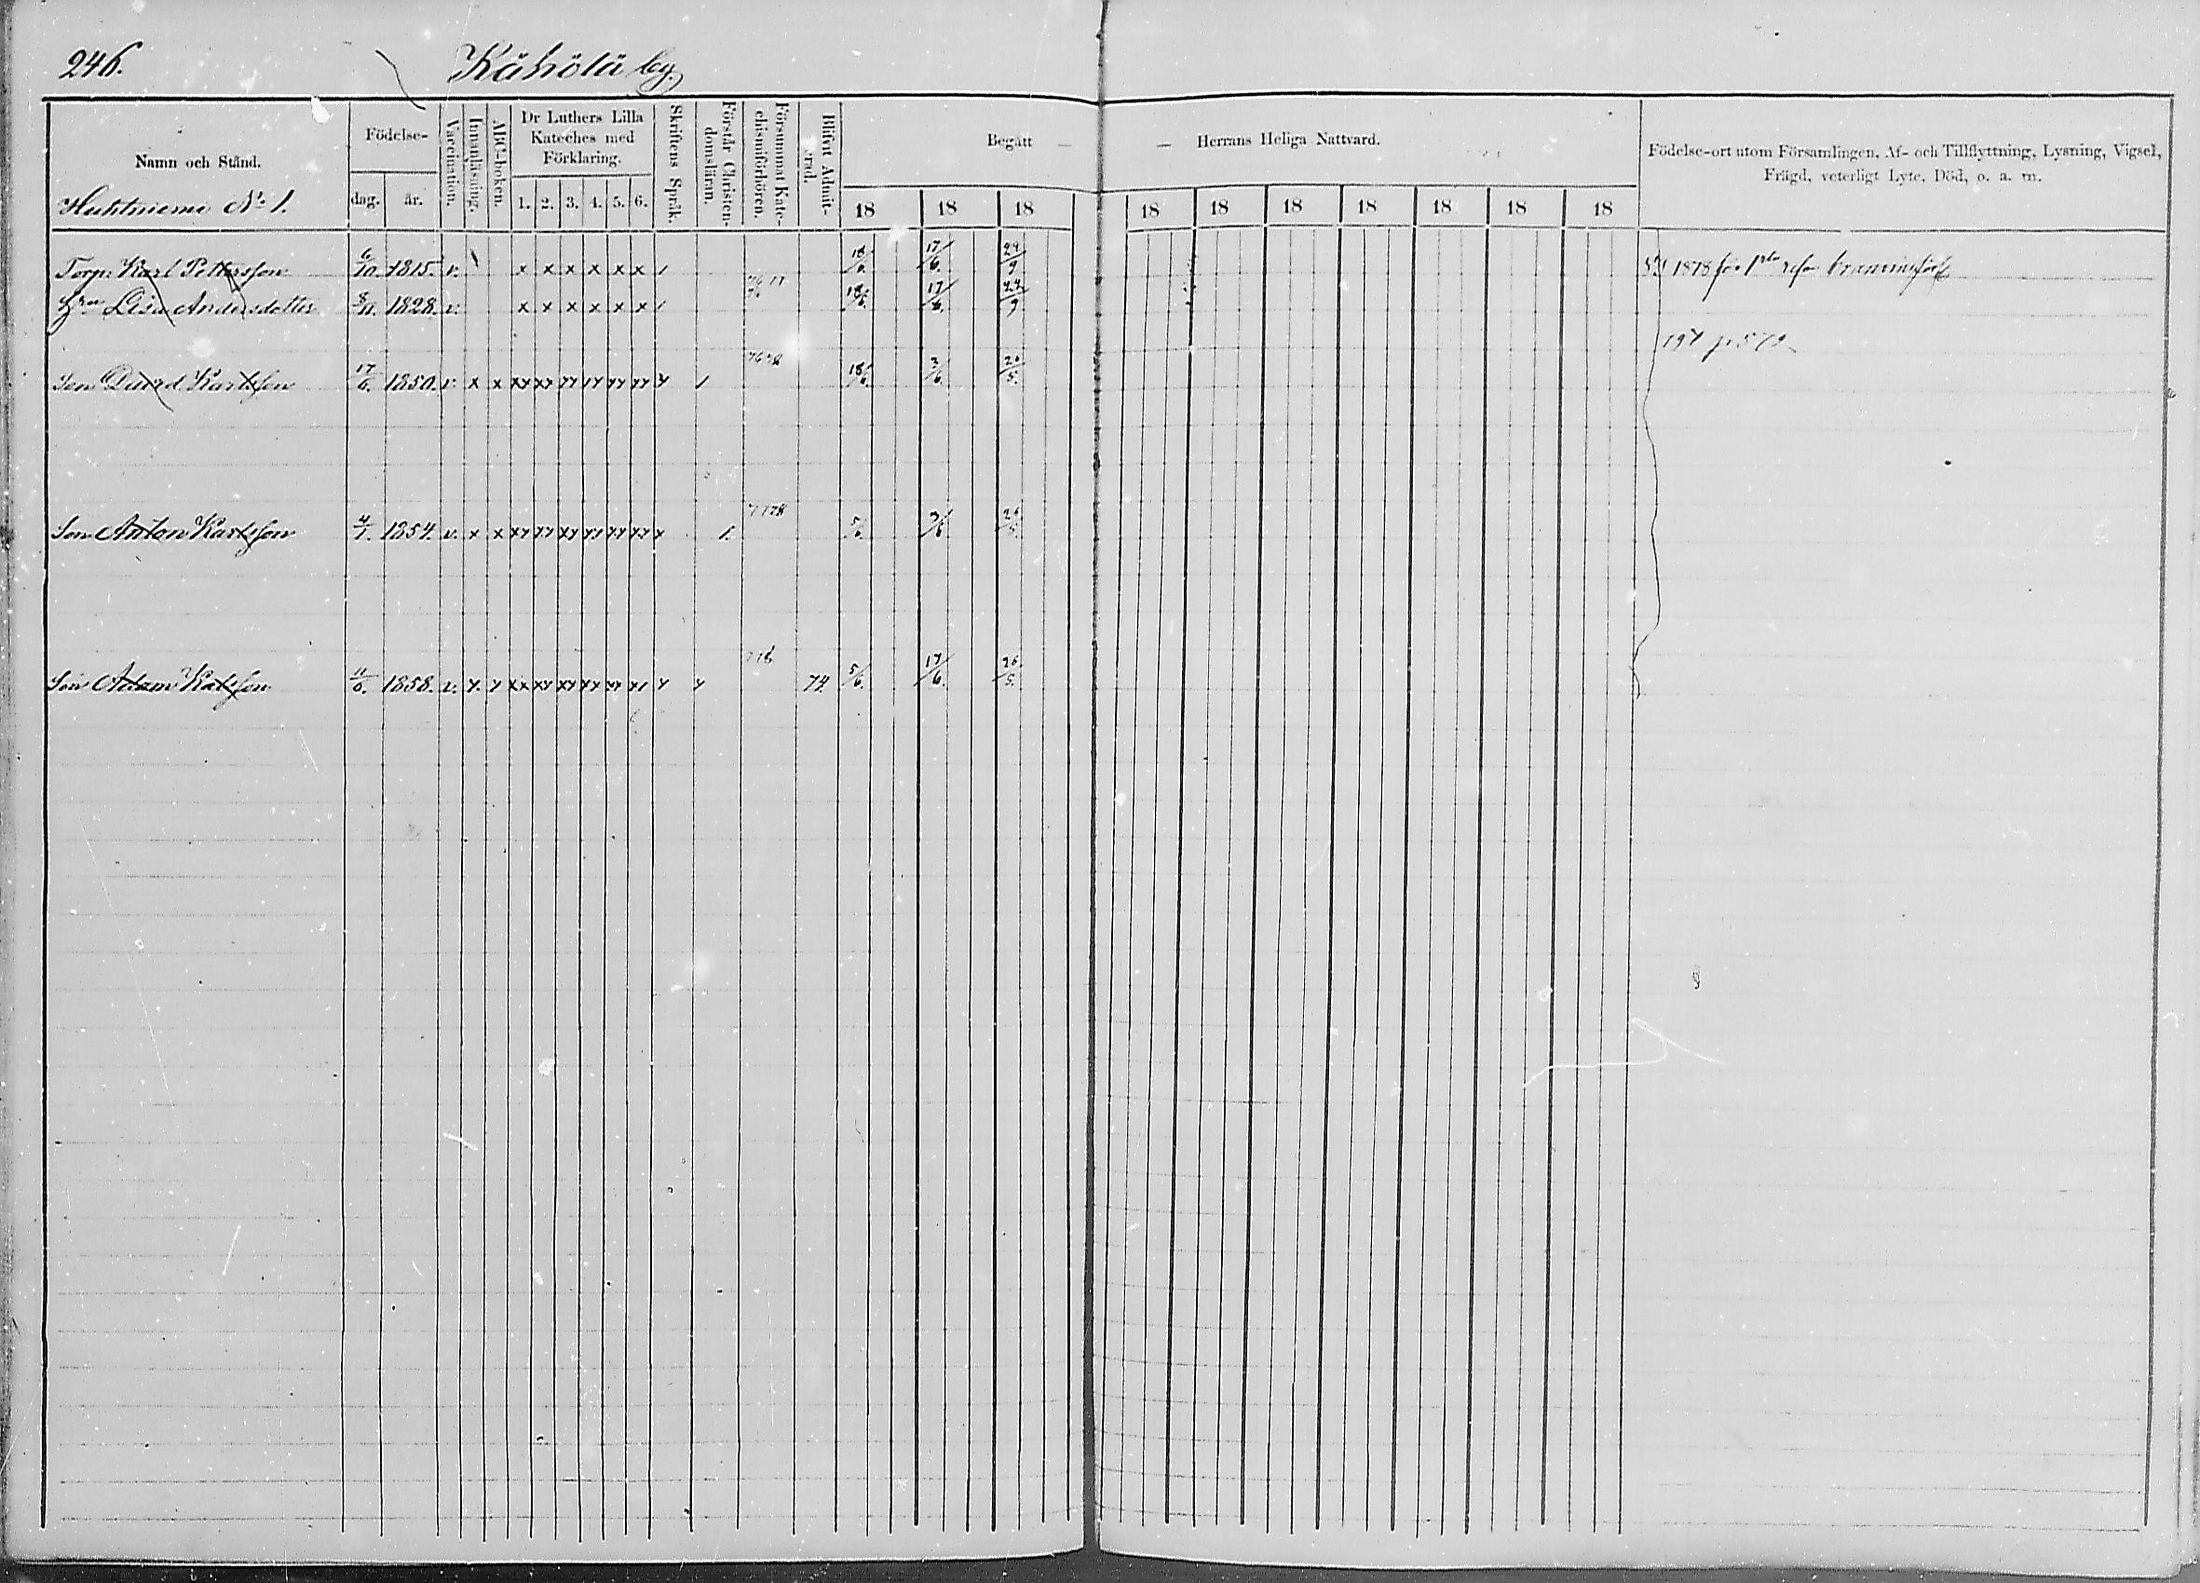 246.
Kähölä by.
Namn och Stånd.
Huhtniemi No 1.
Födelse-
dag. år.
Vaccination.
Innanläsning.
ABC-boken.
Dr Luthers Lilla Kateches med Förklaring.
1. 2. 3. 4. 5. 6.
Skriftens Språk.
Förstår Christendomsläran.
Försummat Katechismiförhören.
Blifvit Admitterad.
Begått — — Herrans Heliga Nattvard.
18 18 18 18 18 18 18 18 18 18
Födelse-ort utom Församlingen, Af- och Tillflyttning, Lysning, Vigsel,
Frägd, veterligt Lyte, Död, o. a. m.
Torp. Karl Pettersson 6/10. 1815. v. x x x x x x 18/6. 17/6. 29/9 1878 för 1sta resan
Hru Lisa Andersdotter 8/11. 1828. v. x x x x x x 18/6. 17/6. 29/9
197 p 579
Son David Karlsson 17/6. 1850. v. x x 18/6. 3/6. 26/5.
Son Anton Karlsson 4/1. 1854. v. x x 5/6. 3/6 26/5.
Son Adam Karlsson 1858. v. 74. 5/6. 17/6. 26/5.